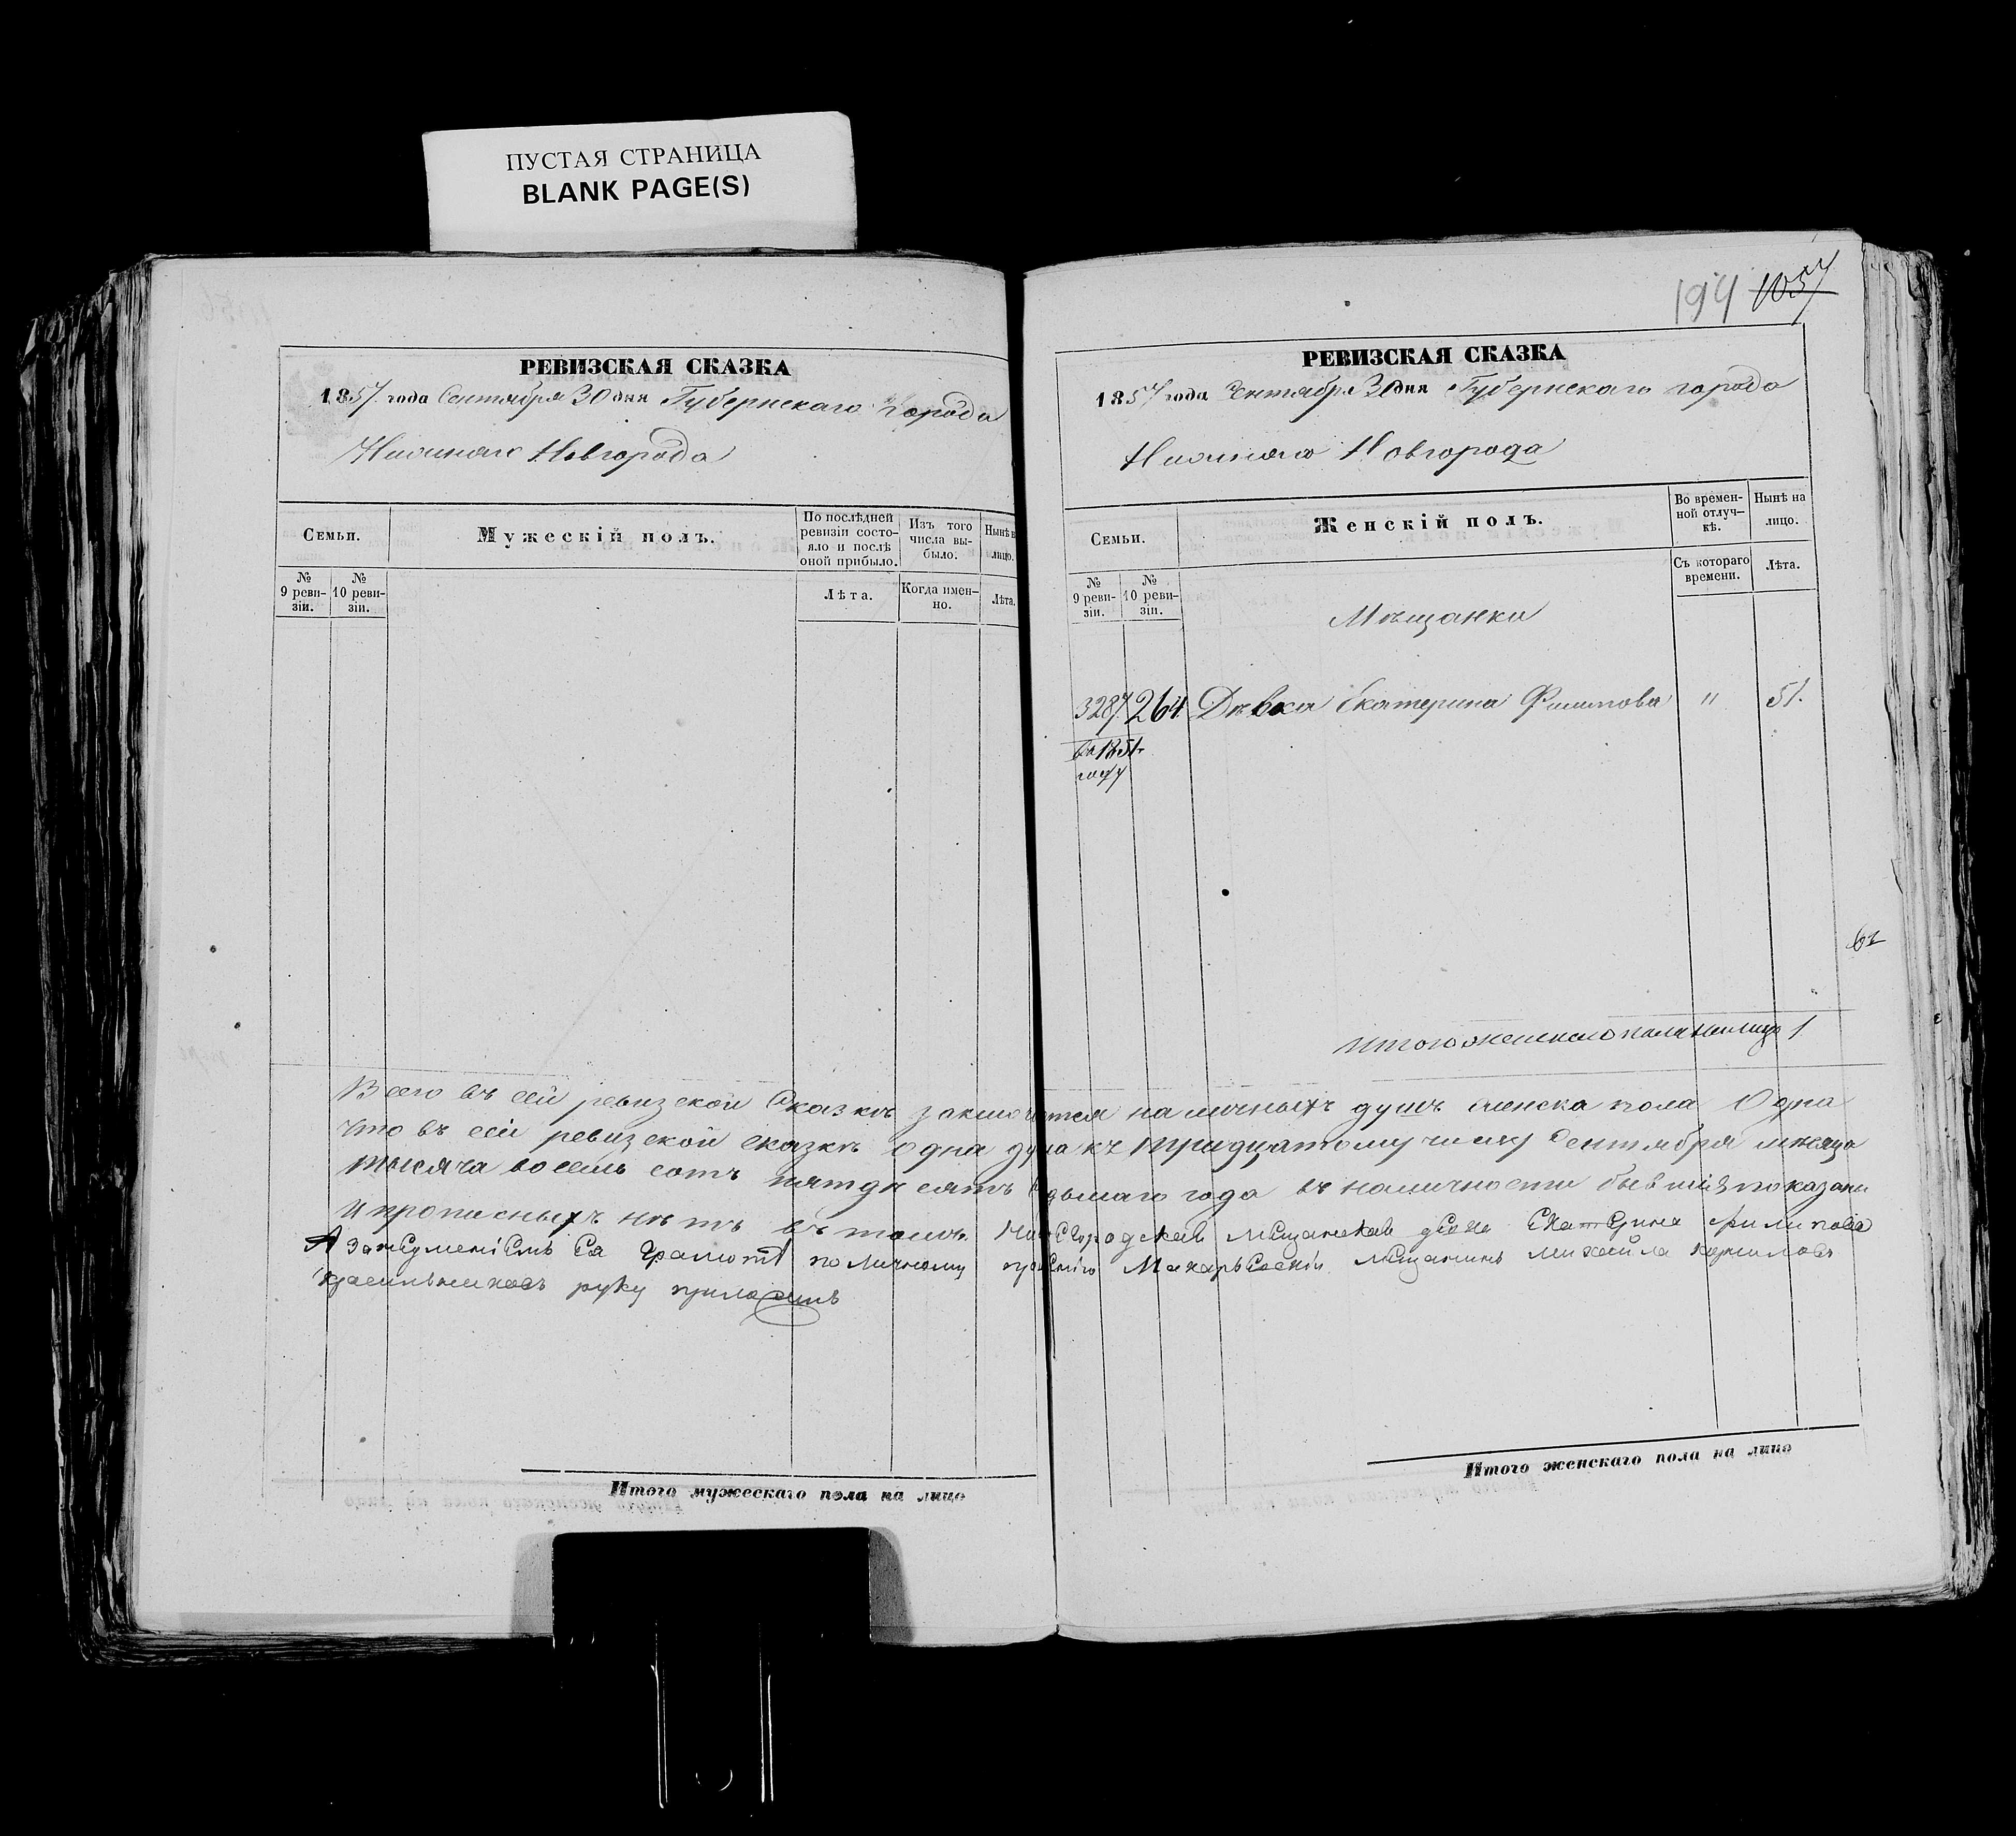 ПУСТАЯ СТРАНИЦА
BLANK PAGE(S)
РЕВИЗСКАЯ СКАЗКА
1857 года Сентября 30 дня Губернскаго города
Нижняго Новгорода
Семьи.
Мужескій полъ.
По послѣдней ревизіи состояло и послѣ оной прибыло.
Изъ того числа выбыло.
Нынѣ на лицо.
№ 9 ревизіи.
№ 10 ревизіи.
Лѣта.
Когда именно.
Лѣта.
194 1057
РЕВИЗСКАЯ СКАЗКА
1857 года Сентября 30 дня Губернскаго города
Нижняго Новгорода
Семьи.
Женскій полъ.
Во временной отлучкѣ.
Нынѣ на лицо.
№ 9 ревизіи.
№ 10 ревизіи.
Съ котораго времени.
Лѣта.
Мѣщанки
3287. 264 Дѣвка Екатерина Филипова " 51.
въ 1851
году
Итого женскаго пола на лицо 1
Всего въ сей ревизской Сказкѣ заключается наличныхъ душъ женска пола Одна
Что въ сей ревизской сказкѣ одна душа къ тридцатому числу Сентября мѣсяца
тысяча восемь сотъ пятдѣсятъ седьмаго года въ наличности бывшія показаны
и прописныхъ нѣтъ въ томъ Нижегородская мещанская Екатерина Филипова
А за неуменіемъ Ея Грамоте по личному прошенію Макарьевскій мещанинъ михайла
Красильниковъ руку приложилъ
Итого мужескаго пола на лицо
Итого женскаго пола на лицо